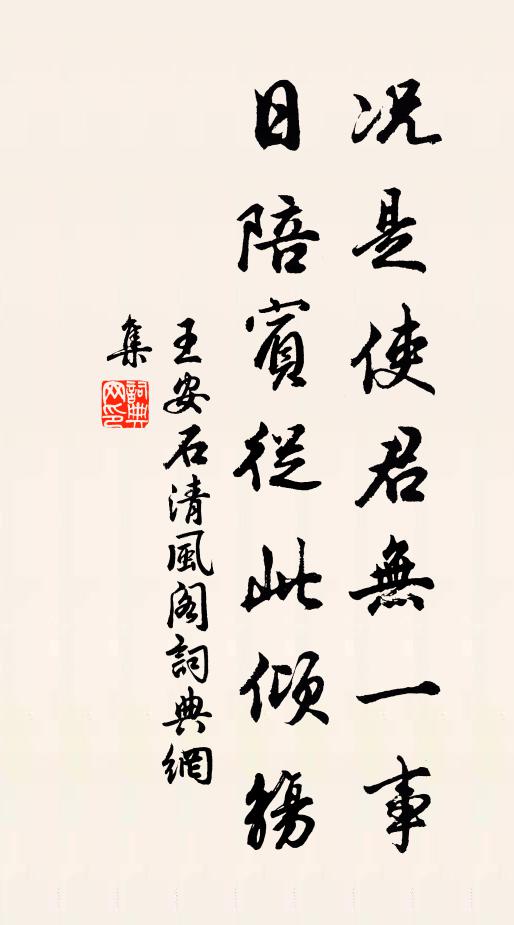 况是使君無一事
日陪賓從此傾觴
王安石清風阁詞典網
集
詞典網印